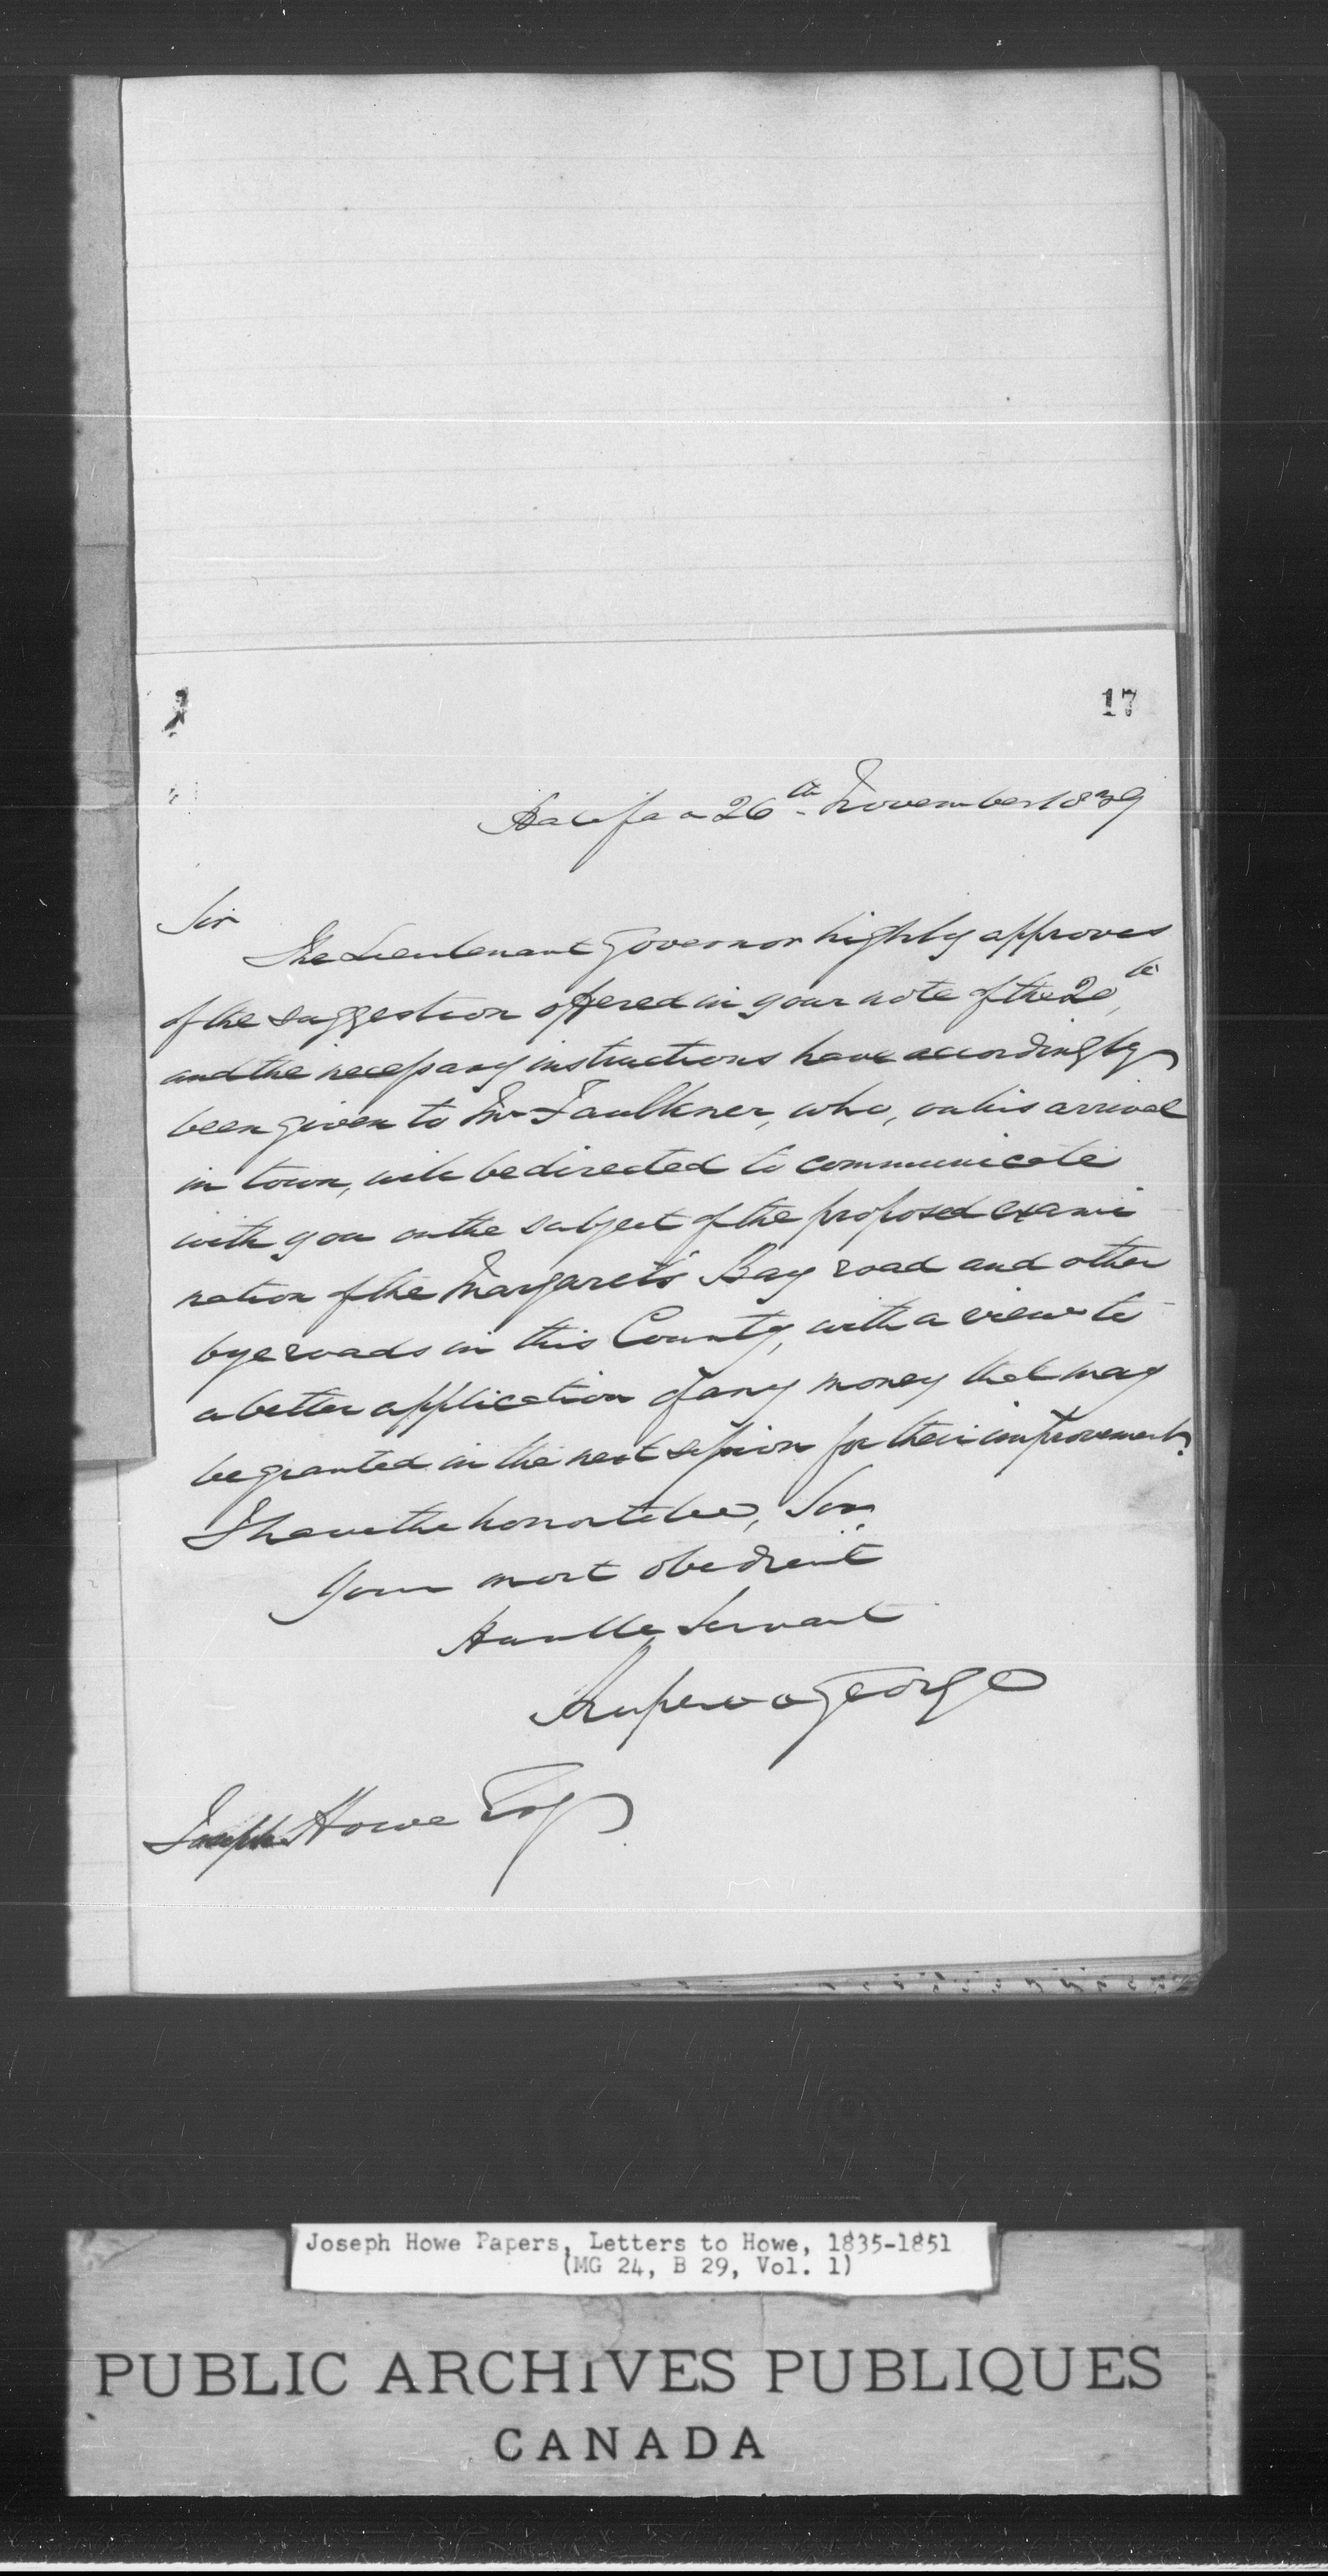 17
Halifax 26th November 1839
Sir
The Lieutenant Governor highly approves
of the suggestion offered in your note of the 20th,
and the necessary instructions have accordingly
been given to Mr Faulkner, who, on his arrival
in town, will be directed to communicate
with you on the subject of the proposed exami
nation of the Margaret's Bay road and other
bye roads in this County, with a view to
a better application of any money that may
be granted in the next session for their improvement.
I have the honor to be, Sir,
Your most obedient
Humble Servant
Rupert D George
Joseph Howe Esq
Joseph Howe Papers, Letters to Howe, 1835-1851
(MG 24, B 29, Vol. 1)
PUBLIC ARCHIVES PUBLIQUES
CANADA